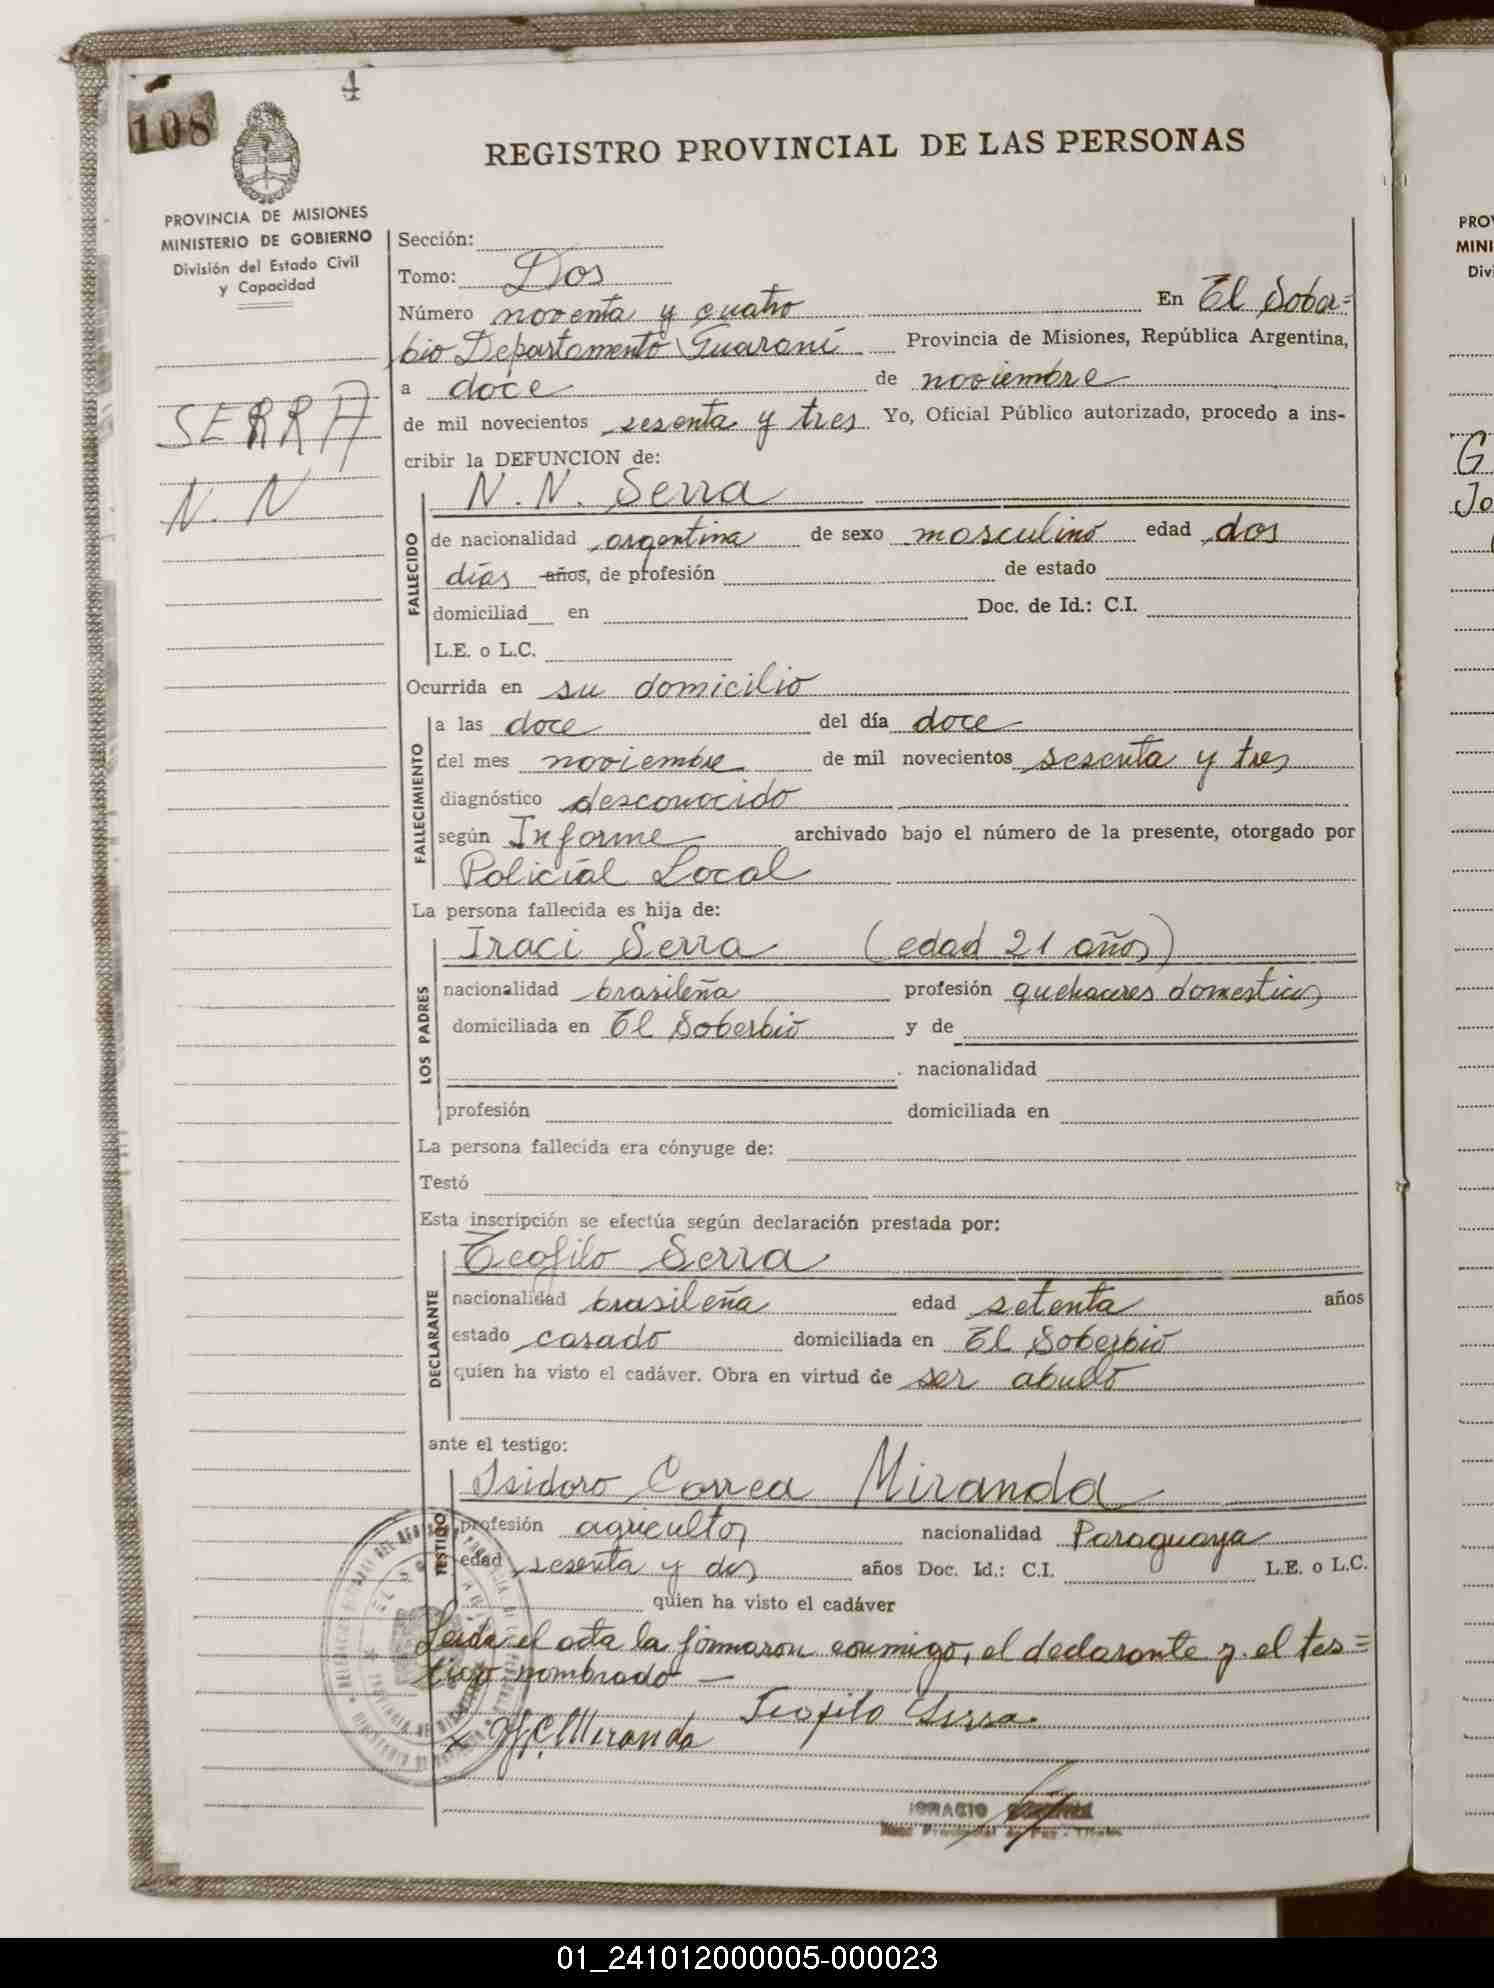 108
4
REGISTRO PROVINCIAL DE LAS PERSONAS
PROVINCIA DE MISIONES
MINISTERIO DE GOBIERNO
División del Estado Civil
y Capacidad
SERRA
N. N
Sección:
Tomo: Dos
Número noventa y cuatro En El Sober=
bio Departamento Guaraní Provincia de Misiones, República Argentina,
a doce de noviembre
de mil novecientos sesenta y tres Yo, Oficial Público autorizado, procedo a ins-
cribir la DEFUNCION de:
N. N. Serra
FALLECIDO
de nacionalidad argentina de sexo masculino edad dos
días años, de profesión de estado
domiciliad en Doc. de Id.: C.I.
L.E. o L.C.
Ocurrida en su domicilio
FALLECIMIENTO
a las doce del día doce
del mes noviembre de mil novecientos sesenta y tres
diagnóstico desconocido
según Informe archivado bajo el número de la presente, otorgado por
Policial Local
La persona fallecida es hija de:
LOS PADRES
Iraci Serra (edad 21 años)
nacionalidad brasileña profesión quehaceres domesticos
domiciliada en El Soberbio y de
nacionalidad
profesión domiciliada en
La persona fallecida era cónyuge de:
Testó
Esta inscripción se efectúa según declaración prestada por:
DECLARANTE
Teofilo Serra
nacionalidad brasileña edad setenta años
estado casado domiciliada en El Soberbio
quien ha visto el cadáver. Obra en virtud de ser abuelo
ante el testigo:
TESTIGO
Isidoro Correa Miranda
profesión agricultor nacionalidad Paraguaya
edad sesenta y dos años Doc. Id.: C.I. L.E. o L.C.
quien ha visto el cadáver
Leida el acta la firmaron conmigo, el declarante y el tes=
tigo nombrado —
Teofilo Serra
x Y.C. Miranda
IGNACIO
PROV
MINI
Divi
G
Jo
01_241012000005-000023